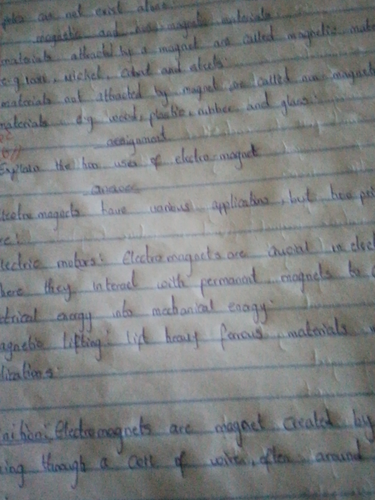 poles can not exist alone
magnetic and non magnetic materials
materials attracted by a magnet are called magnetic mate
e.g iron, nickel, cobalt and steels.
materials not attracted by magnet are called non magnetic
materials e.g wood, plastic, rubber and glass.
assignment
Explain the two uses of electro magnet
answer
lectro magnets have various applications, but two
re:
lectric motors: Electromagnets are crucial in elect
here they interact with permanent magnets to
ctrical energy into mechanical energy.
agnetic lifting: lift heavy ferrous materials
lications.
inition: Electromagnets are magnet created by
ing through a coil of wire, often around